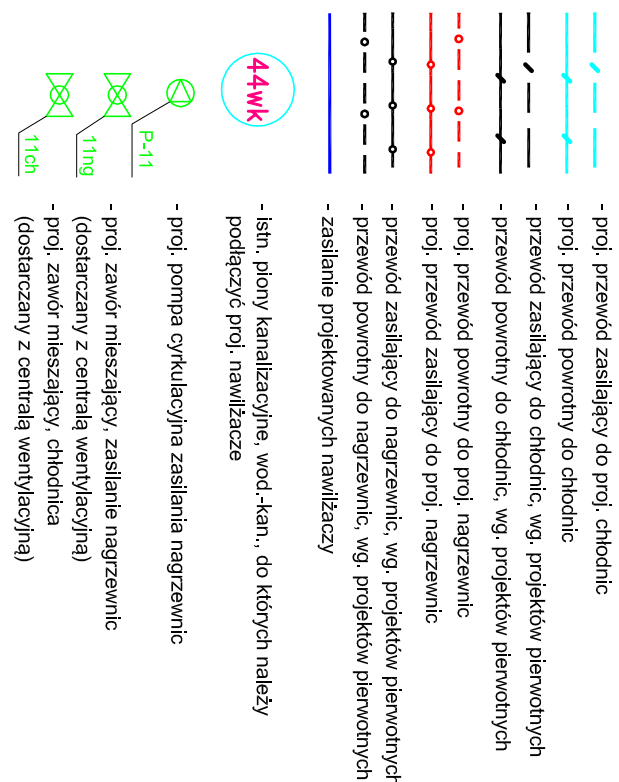 - proj. przewód zasilający do proj. chłodnic
- proj. przewód powrotny do chłodnic
- przewód zasilający do chłodnic, wg. projektów pierwotnych
- przewód powrotny do chłodnic, wg. projektów pierwotnych
- proj. przewód powrotny do proj. nagrzewnic
- proj. przewód zasilający do proj. nagrzewnic
- przewód zasilający do nagrzewnic, wg. projektów pierwotnych
- przewód powrotny do nagrzewnic, wg. projektów pierwotnych
- zasilanie projektowanych nawilżaczy
44wk
- istn. piony kanalizacyjne, wod.-kan., do których należy
podłączyć proj. nawilżacze
P-11
- proj. pompa cyrkulacyjna zasilania nagrzewnic
11ng
- proj. zawór mieszający, zasilanie nagrzewnic
(dostarczany z centralą wentylacyjną)
11ch
- proj. zawór mieszający, chłodnica
(dostarczany z centralą wentylacyjną)